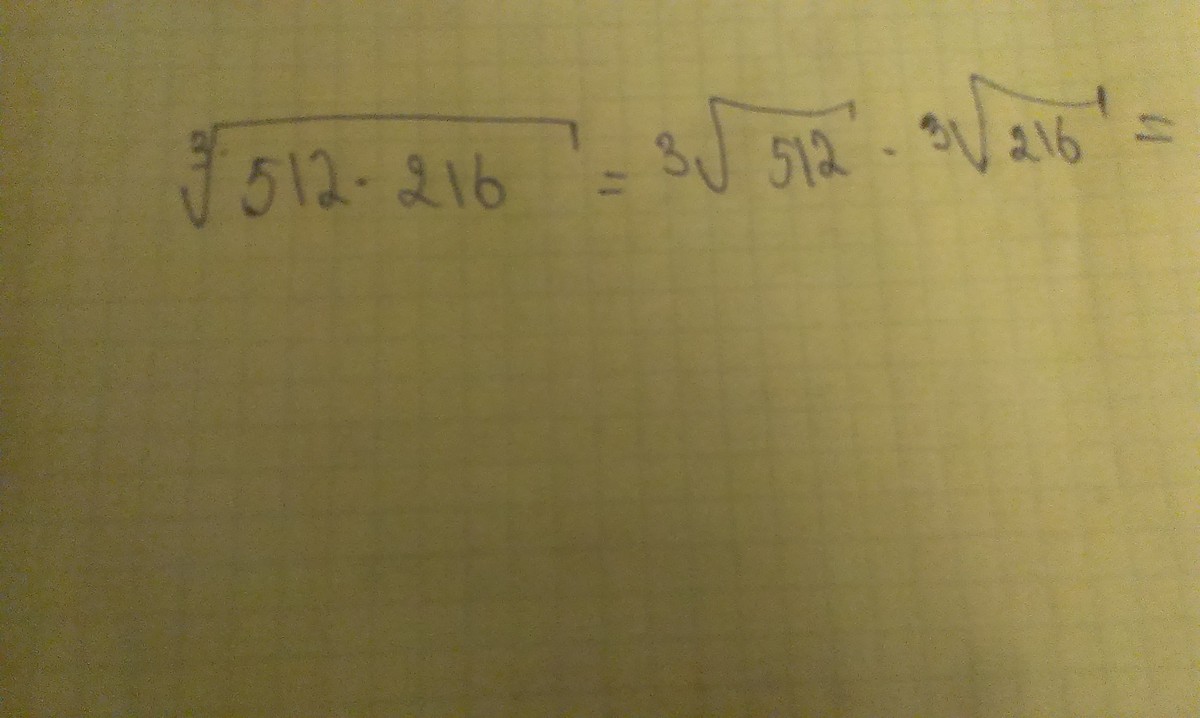 ∛512 · 216 = ³√512 · ³√216 =